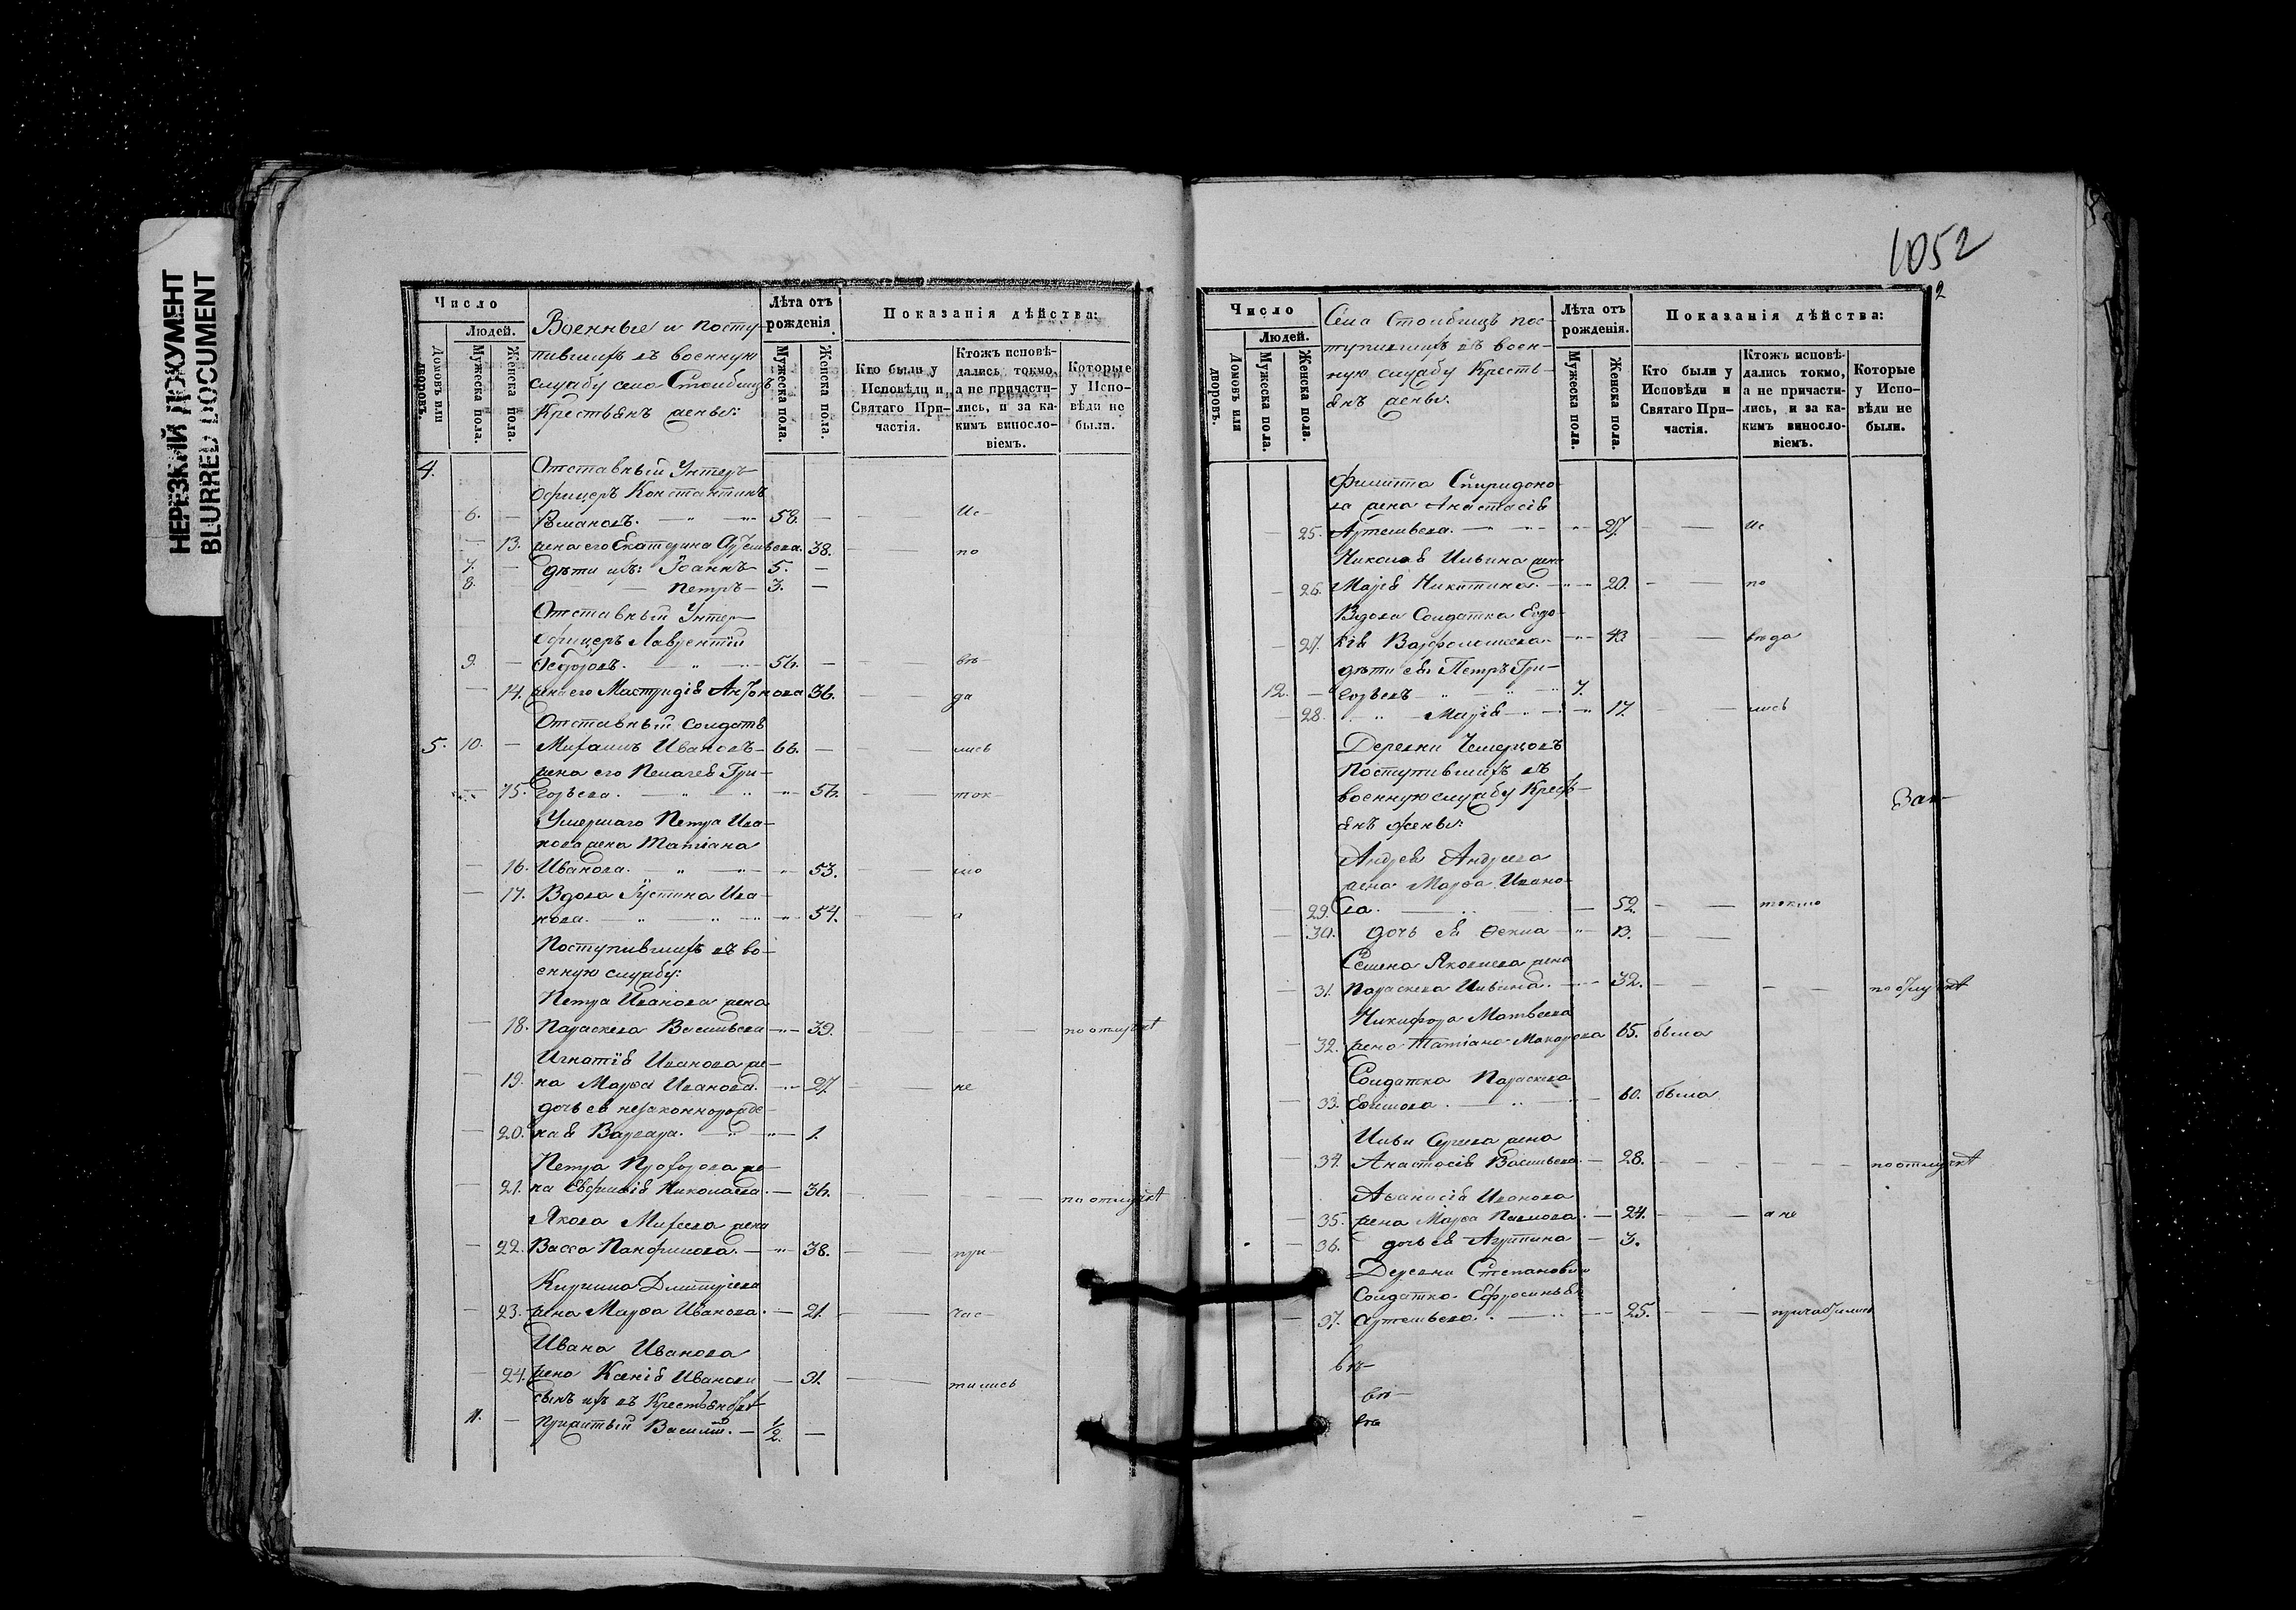 НЕРЕЗКИЙ ДОКУМЕНТ
BLURRED DOCUMENT
Число
Людей.
Домовъ или дворовъ.
Мужеска пола.
Женска пола.
Военные и посту-
пившихъ въ военную
службу села Столбищъ
Крестьянъ жены:
Лѣта отъ рожденія.
Мужеска пола.
Женска пола.
Показанія дѣйства:
Кто были у Исповѣди и Святаго Причастія.
Ктожъ исповѣдались токмо, а не причастились, и за какимъ винословіемъ.
Которые у Исповѣди не были.
4.
Отставный Унтеръ
офицеръ Константинъ
6. — — " — " — 58. — Ис-
— 13. жена его Екатерина Артемьева. 38. — по
7. — дѣти ихъ: Іоаннъ — 5. —
8. — Петръ — 3. —
Отставный Унтер
Офицеръ Лаврентій
9. — Ѳедоровъ. — " — 56. — вѣ-
— 14. жена его Мастридія Антонова 36. — да
Отставный солдатъ
5. 10. — Михаилъ Ивановъ — 66. — лись
жена его Пелагея Гри-
— 15. горьева. — " — " — 56. — ток-
Умершаго Петра Ива-
нова жена Татіана
— 16. Иванова. — " — 53. — мо
— 17. Вдова Іустина Ива-
нова. — " — " — 54. — а
Поступившихъ въ во-
енную службу:
Петра Иванова жена
— 18. Параскева Васильева — " — 39. — — по отлучкѣ
Игнатія Иванова же-
— 19. на Марѳа Иванова. — " — 27. — не
дочь ея незаконнорожде-
— 20. ная Варвара. — " — 1.
Петра Прохорова же-
— 21. на Евфимія Николаева. — 36. — — по отлучкѣ
Якова Михеева жена
— 22. Васса Панфилова. — " — 38. — при-
Кирилла Дмитріева
— 23. жена Марѳа Иванова. — 21. — час-
Ивана Иванова
— 24. жена Ксенія Иванова — 31. — тились
сынъ ихъ въ Крестьянствѣ
11. — прижитый Василій. — 1/2. —
1052
2
Число
Людей.
Домовъ или дворовъ.
Мужеска пола.
Женска пола.
Села Столбищъ пос-
тупившихъ въ воен-
ную службу Кресть-
янъ жены.
Лѣта отъ рожденія.
Мужеска пола.
Женска пола.
Показанія дѣйства:
Кто были у Исповѣди и Святаго Причастія.
Ктожъ исповѣдались токмо, а не причастились, и за какимъ винословіемъ.
Которые у Исповѣди не были.
Филиппа Спиридоно-
ва жена Анастасія
— 25. Артемьева. — " — " — 27. — — ис
Николая Ильина жена
— 26. Марія Никитина. — " — 20. — — по
Вдова Солдатка Евдо-
— 27. кія Варфоломеева — " — 43 — — вѣда
дѣти ея Петръ Гри-
12. — горьевъ — " — " — 7.
— 28. — " — Марія — " — 17. — лись
Деревни
Поступившихъ въ
военную службу Кресть-
янъ жены:
Андрея Андреева
жена Марѳа Ивано-
— 29. ва. — " — 52. — — токмо
— 30. дочь ея Ѳекла — " — 13. —
Семена Яковлева жена
— 31. Параскева Ильина. — " — 32. — — по отлучкѣ
Никифора Матвеева
— 32. жена Татіана Макарова 65. была
Солдатка Параскева
— 33. Ефимова. — " — 60. была
Ильи Сергеева жена
— 34. Анастасія Васильева — 28. — — по отлучкѣ
Аѳанасія Иванова
— 35. жена Марѳа Павлова. — 24. — — а не
— 36. дочь ея Агриппина — 3.
Деревни
Солдатка Ефросинья
— 37. Артемьева. — " — 25. — — причастились